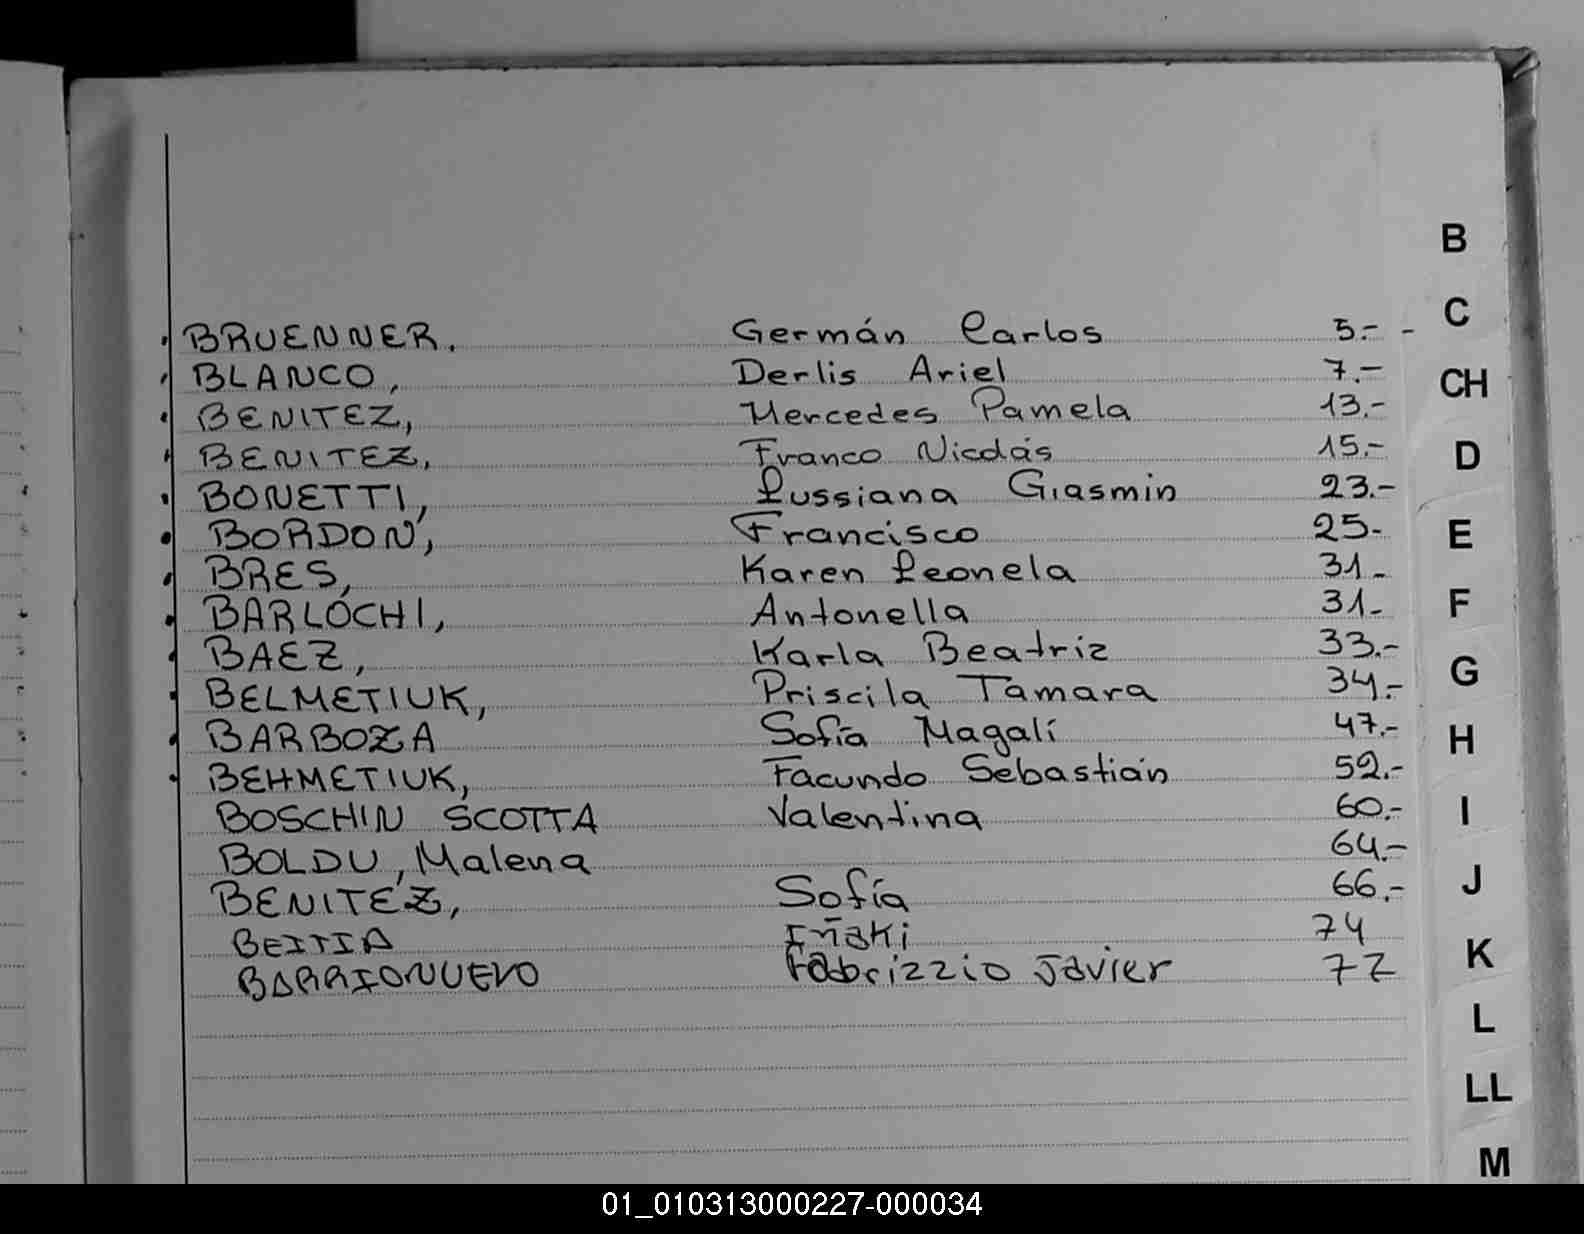 B
BRUENNER. Germán Carlos 5.- -
C
BLANCO, Derlis Ariel 7.-
CH
BENITEZ, Mercedes Pamela 13.-
BENITEZ, Franco Nicolás 15.-
D
BONETTI, Lussiana Giasmin 23.-
BORDON, Francisco 25-
E
BRES, Karen Leonela 31-
BARLOCHI, Antonella 31-
F
BAEZ, Karla Beatriz 33.-
BELMETIUK, Priscila Tamara 34.-
G
BARBOZA Sofía Magalí 47.-
H
BEHMETIUK, Facundo Sebastián 52.-
BOSCHIN SCOTTA Valentina 60.-
I
BOLDU, Malena 64.-
BENITEZ, Sofía 66.-
J
BEITIA Iñaki 74
K
BARRIONUEVO Fabrizzio Javier 77
L
LL
M
01_010313000227-000034